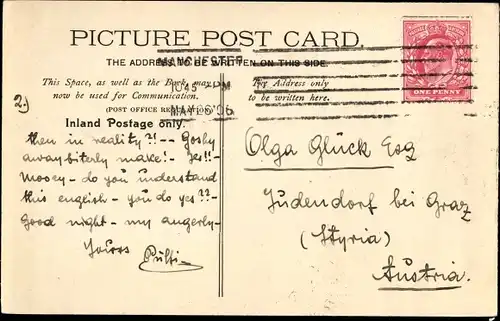 PICTURE POST CARD.
THE ADDRESS TO BE WRITTEN ON THIS SIDE.
MANCHESTER
10 45 PM
MAY 06
This Space, as well as the Back, may
now be used for Communication.
(POST OFFICE
Inland Postage only.
The Address only
to be written here.
ONE PENNY
2.)
then in reality?! -- Goshy
away biterly make! - Yes!!-
Mooey - do you understand
this english - you do yes??-
Good night - my angerly-
Yours
Pülti-
Olga Glück Esq
Judendorf bei Graz
(Styria)
Austria.